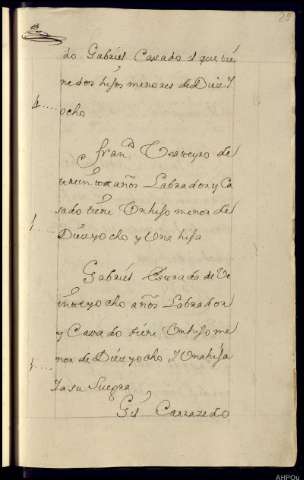 do Gabriel Casado, y que tie
ne dos hijos menores de Diez y
4....
ocho
Fran.co
de
años Labrador y Ca
sado tiene Un hijo menor de
1....
Diez y ocho y Una hija
Gabriel de Ve
años Labrador
y Casado tiene Un hijo me
1....
nor de Diez y ocho, y Una hija
y a su Suegra
Carrazedo
AHPOu